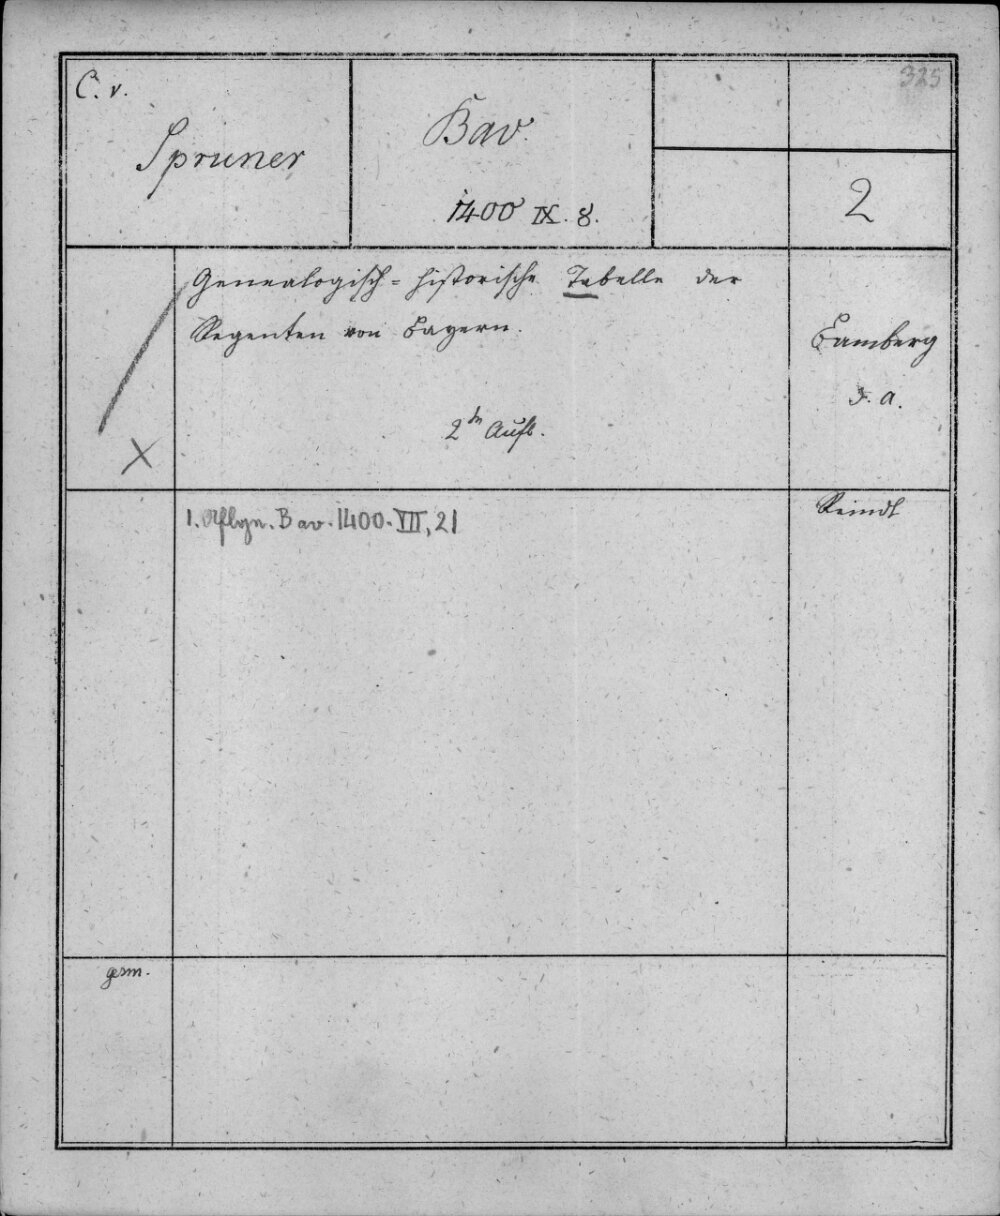 C. v.
Spruner
Bav.
1400 IX. 8.
325
2
Genealogisch-historische Tabelle der
Regenten von Bayern.
2te Aufl.
Bamberg
s. a.
Reindl
1. Aflgn. Bav. 1400. VII, 21
germ.